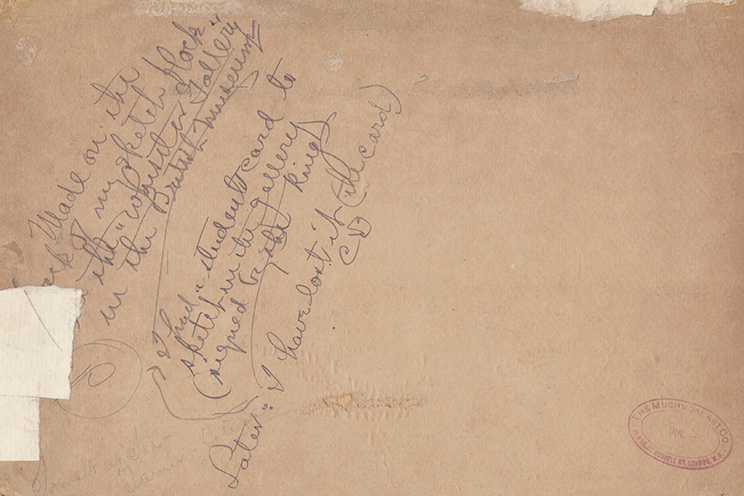 Made on the
of my sketch block
in the "Whistler Gallery"
in the British Museum
I had a student's card to
sketch in the gallery
(signed by the King)
Later: I have lost it (the card)
CD
THE MUCHMORE ART CO.
LONDON, W.C.